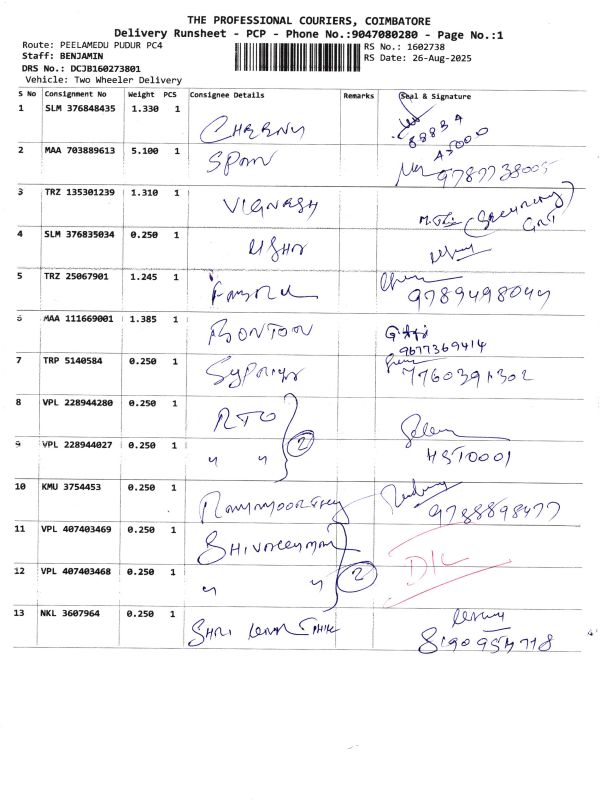 THE PROFESSIONAL COURIERS, COIMBATORE
Delivery Runsheet - PCP - Phone No.:9047080280 - Page No.:1
Route: PEELAMEDU PUDUR PC4
RS No.: 1602738
Staff: BENJAMIN
RS Date: 26-Aug-2025
DRS No.: DCJB160273801
Vehicle: Two Wheeler Delivery
S No Consignment No Weight PCS Consignee Details Remarks Seal & Signature
1 SLM 376848435 1.330 1
88834
A5000
2 MAA 703889613 5.100 1 SPAN
9787738005
3 TRZ 135301239 1.310 1 VIGNESH
(Security)
GRT
4 SLM 376835034 0.250 1 USHA
5 TRZ 25067901 1.245 1
9789498044
6 MAA 111669001 1.385 1 BONTON
9677369414
7 TRP 5140584 0.250 1
7760391302
8 VPL 228944280 0.250 1 RTO
2
9 VPL 228944027 0.250 1 " "
HST0001
10 KMU 3754453 0.250 1
9788898477
11 VPL 407403469 0.250 1
D/L
12 VPL 407403468 0.250 1 " " 2
13 NKL 3607964 0.250 1 SHRI
8190954718